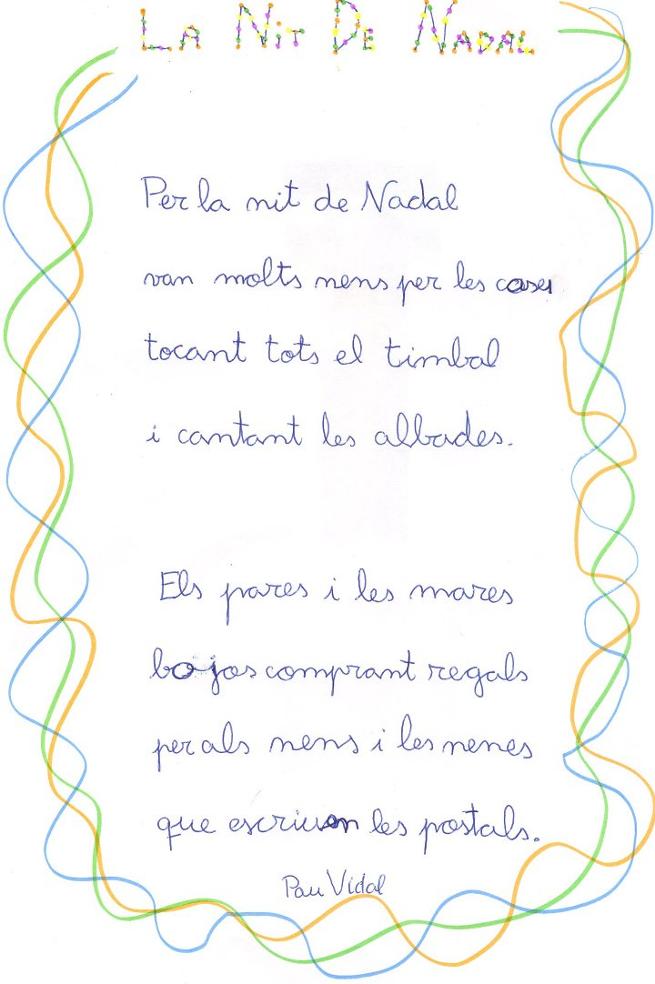 La Nit De Nadal
Per la nit de Nadal
van molts nens per les cases
tocant tots el timbal
i cantant les albades.
Els pares i les mares
bojos comprant regals
per als nens i les nenes
que escriuen les postals.
Pau Vidal